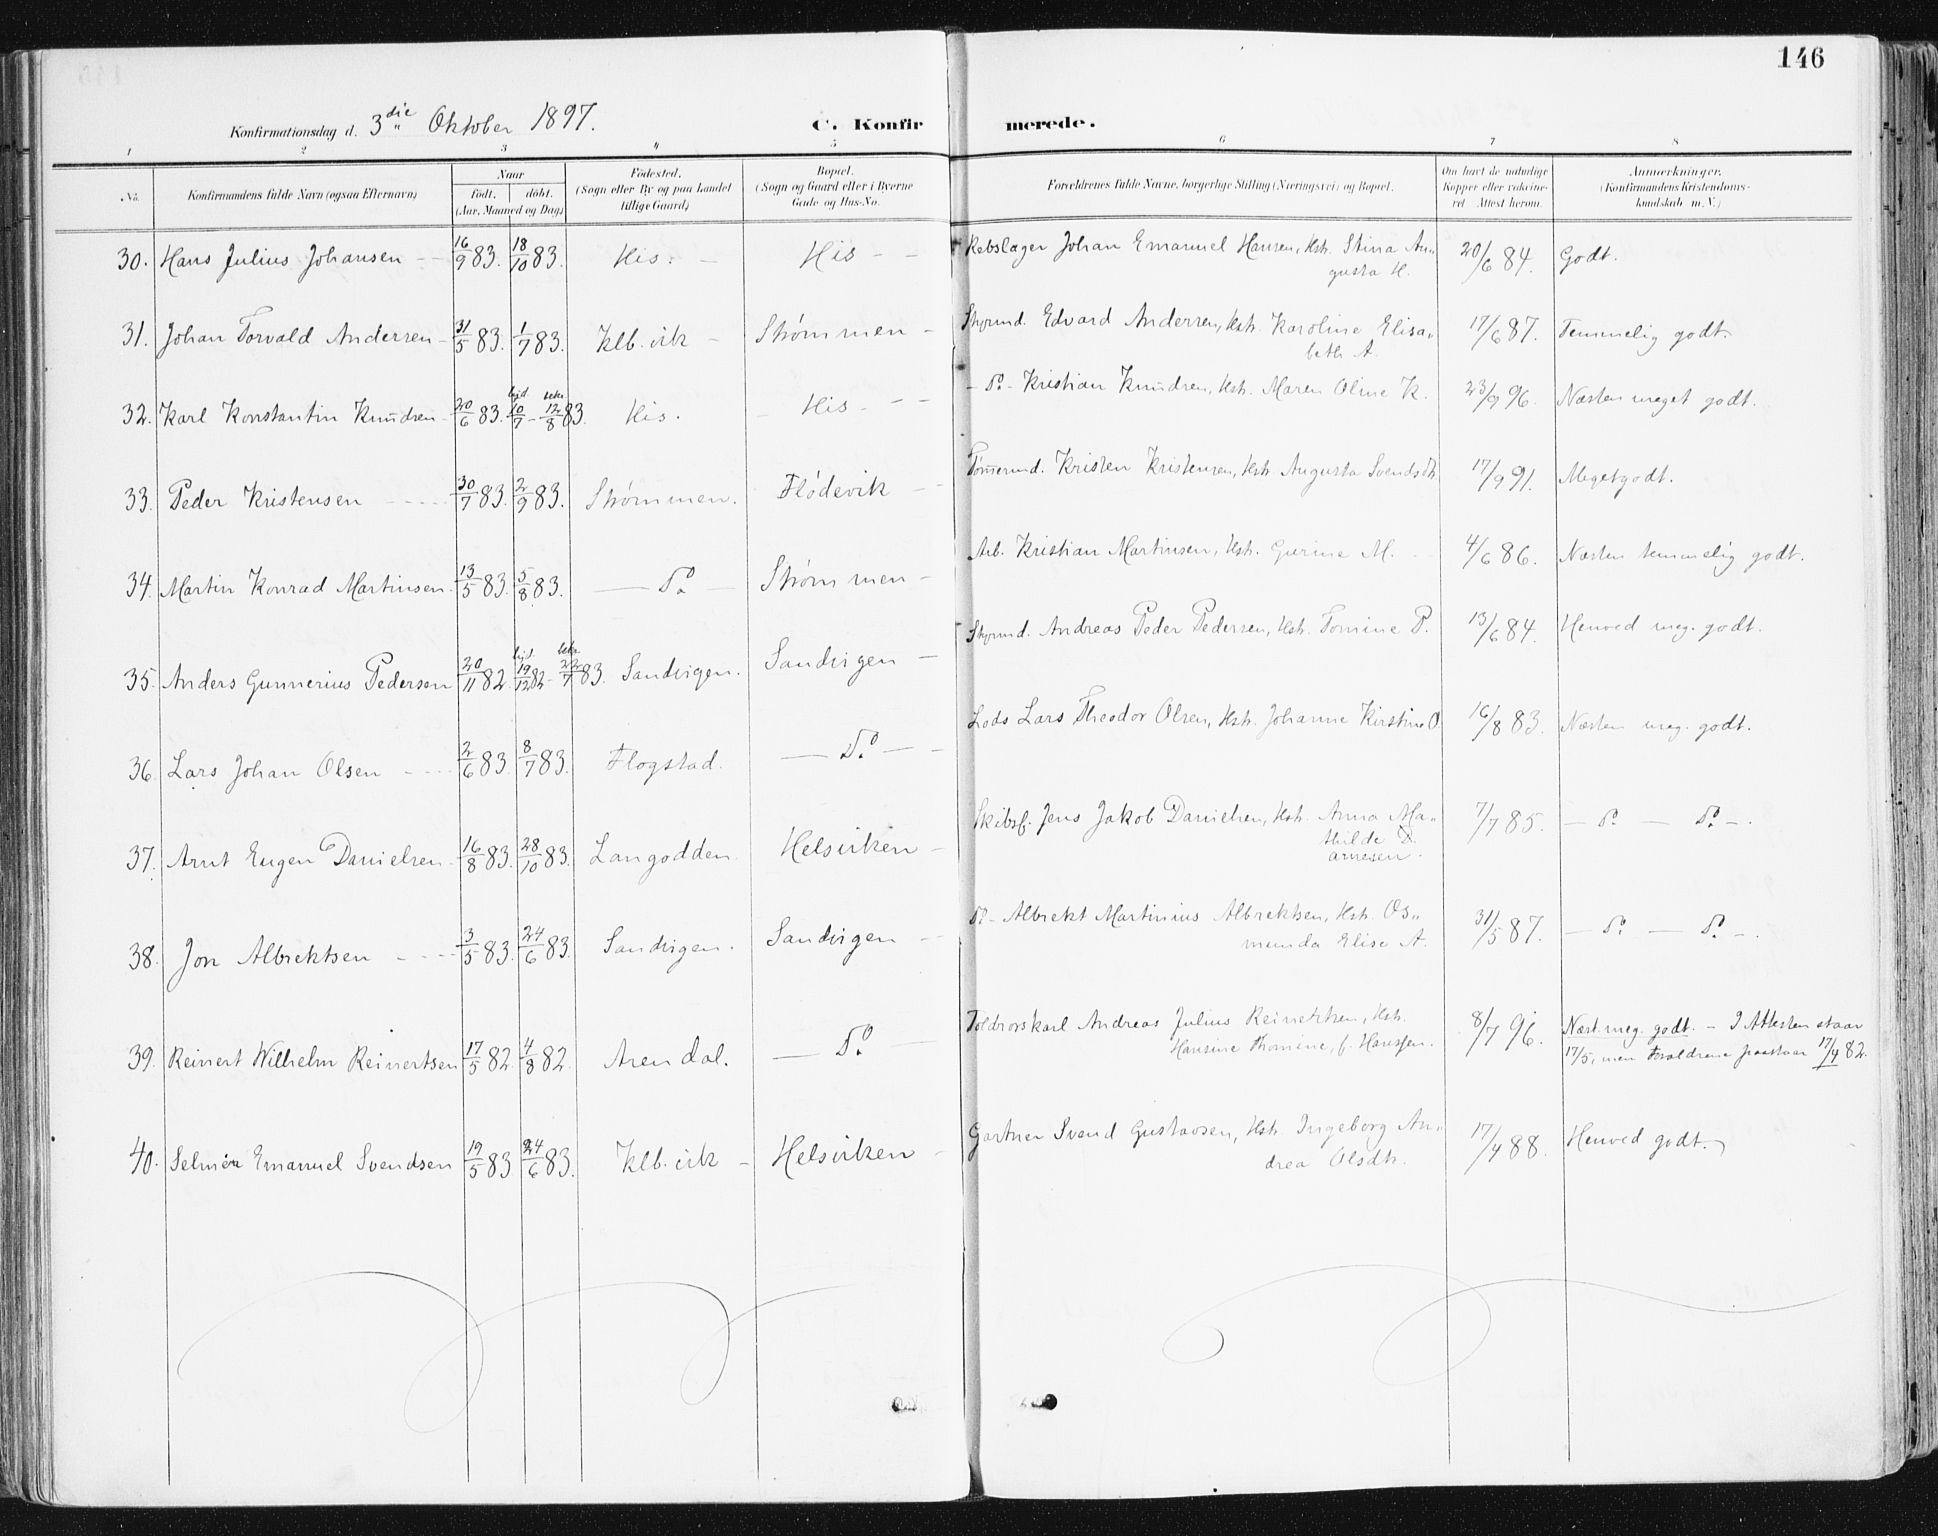 146
Konfirmationsdag d. 3die Oktober 1897. C. Konfirmerede.
1 2 3 4 5 6 7 8
No. Konfirmandens fulde Navn (ogsaa Efternavn) Naar født. døbt. (Aar, Maaned og Dag) Fødested. (Sogn eller By og paa Landet tillige Gaard) Bopæl. (Sogn og Gaard eller i Byerne Gade og Hus-No. Forældrenes fulde Navne, borgerlige Stilling (Næringsvei) og Bopæl. Om havt de naturlige Kopper eller vakcineret Attest herom. Anmærkninger. (Konfirmandens Kristendomskundskab m. V.)
30. Hans Julius Johansen 16/9 83. 18/10 83. His. His Rebslager Johan Emanuel Hansen, Hstr. Stina Au-
gusta H. 20/6 84. Godt.
31. Johan Torvald Andersen 31/5 83. 1/7 83. Klb.vik Strømmen Styrmd. Edvard Andersen, Hstr. Karoline Elisa-
beth A. 17/6 87. Temmelig godt.
32. Karl Konstantin Knudsen 20/6 83. hjd. 10/7 - bekr. 12/8 83. His. His - Do - Kristian Knudsen, Hstr. Maren Oline K. 23/9 96. Næsten meget godt.
33. Peder Kristensen 30/7 83. 2/9 83. Strømmen. Flødevik Tømmermd. Kristen Kristensen, Hstr. Augusta Svendsdtr. 17/9 91. Meget godt.
34. Martin Konrad Martinsen. 13/5 83. 5/8 83. Do Strømmen Arb. Kristian Martinsen, Hstr. Gurine M. 4/6 86. Næsten temmelig godt.
35. Anders Gunnerius Pedersen 20/11 82. hjd. 19/12 82 - bekr. 22/7 83. Sandvigen. Sandvigen Styrmd. Andreas Peder Pedersen, Hstr. Tomine P. 13/6 84. Henved meg. godt.
36. Lars Johan Olsen 2/6 83. 8/7 83. Flogstad. Do Lods Lars Theodor Olsen, Hstr. Johanne Kirstine O. 16/8 83. Næsten meg. godt.
37. Arnt Eugen Danielsen 16/8 83. 28/10 83. Langodden. Helsviken Skibsf. Jens Jakob Danielsen, Hstr. Anna Ma-
thilde D.
Arnesen. 7/7 85. - Do - Do -
38. Jon Albrektsen 3/5 83. 24/6 83. Sandvigen. Sandvigen Do - Albrekt Martinius Albrektsen, Hstr. Os-
munda Elise A. 31/5 87. - Do - Do -
39. Reinert Wilhelm Reinertsen 17/5 82. 4/8 82. Arendal. Do Toldrorskarl Andreas Julius Reinertsen, Hstr.
Hansine Thomine, f. Hanssen. 8/7 96. Næst. meg. godt. - I Attesten staar
17/5, men Forældrene paastaar 17/4 82.
40. Selmer Emanuel Svendsen 19/5 83 24/6 83. Klb.vik Helsviken Gartner Svend Gustavsen, Hstr. Ingeborg An-
drea Olsdtr. 17/4 88. Henved godt.